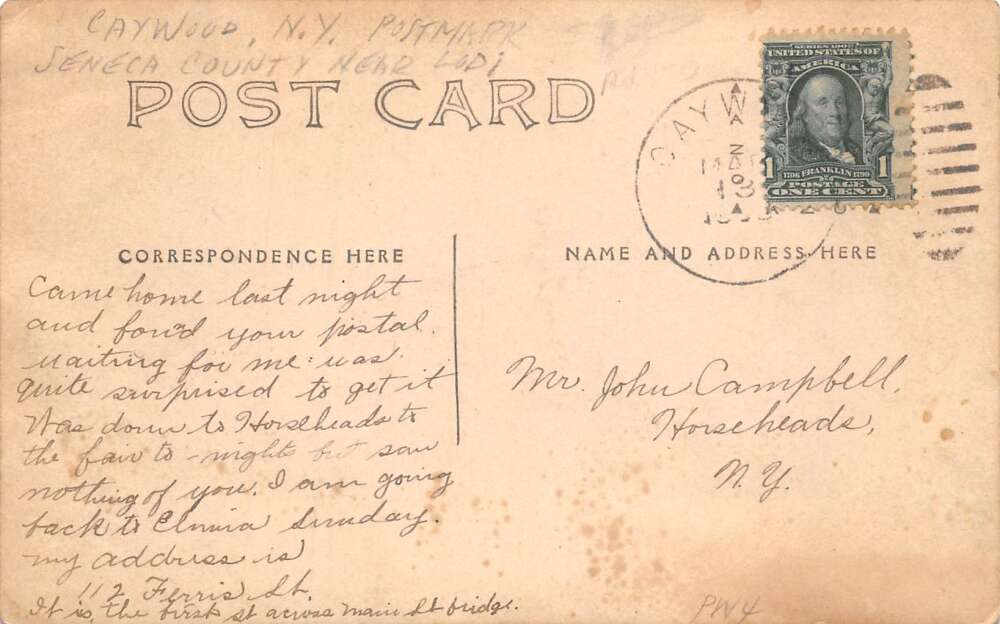 CAYWOOD, N.Y. POSTMARK
SENECA COUNTY NEAR LODI
POST CARD
CAYW
MAR
13
SERIES 1902
UNITED STATES OF
AMERICA
1706 FRANKLIN 1790
1 1
POSTAGE
ONE CENT
CORRESPONDENCE HERE
NAME AND ADDRESS HERE
Came home last night
and found your postal.
waiting for me: was
quite surprised to get it
Was down to Horseheads to
the fair to-night but saw
nothing of you. I am going
back to Elmira Sunday.
my address is
112 Ferris St.
It is, the first st across main st bridge.
Mr. John Campbell,
Horseheads,
N.Y.
PW4